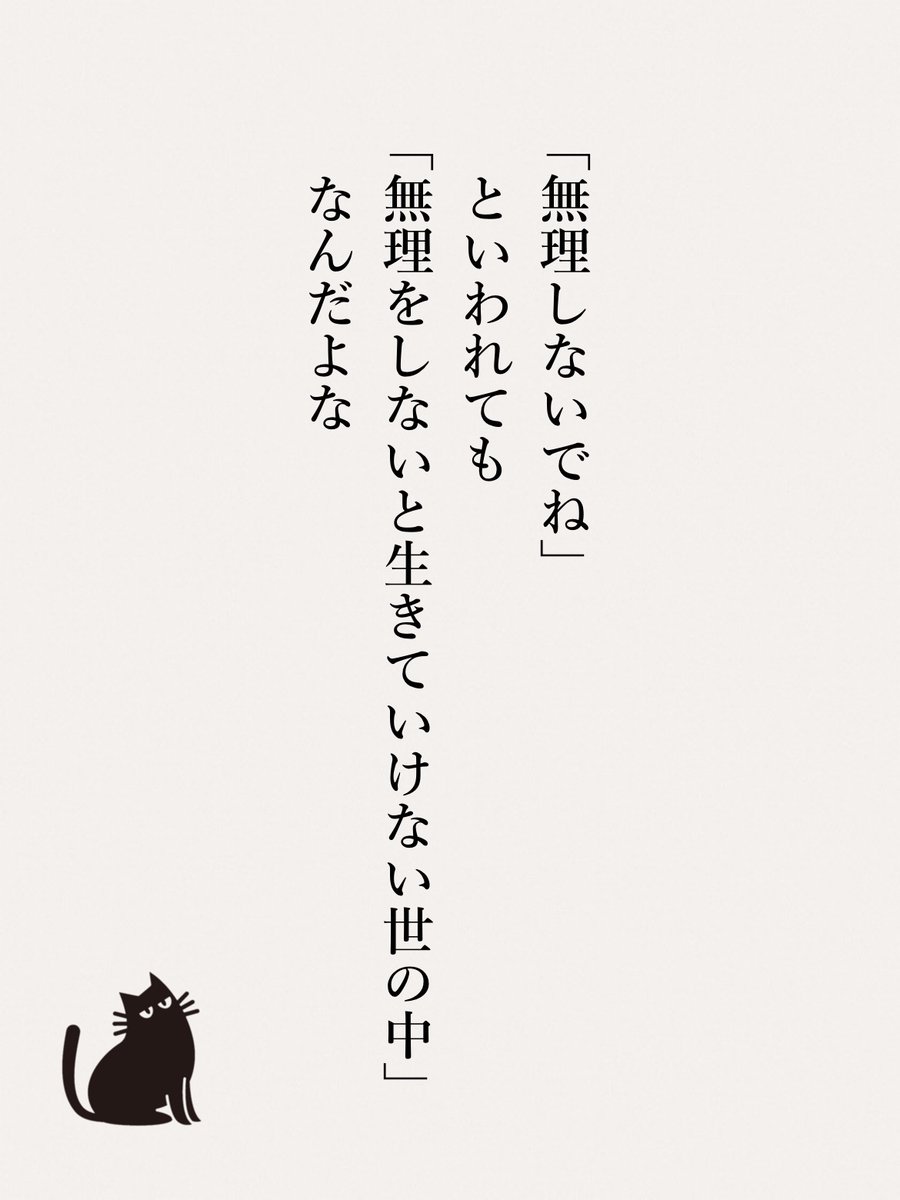 「無理しないでね」
といわれても
「無理をしないと生きていけない世の中」
なんだよな